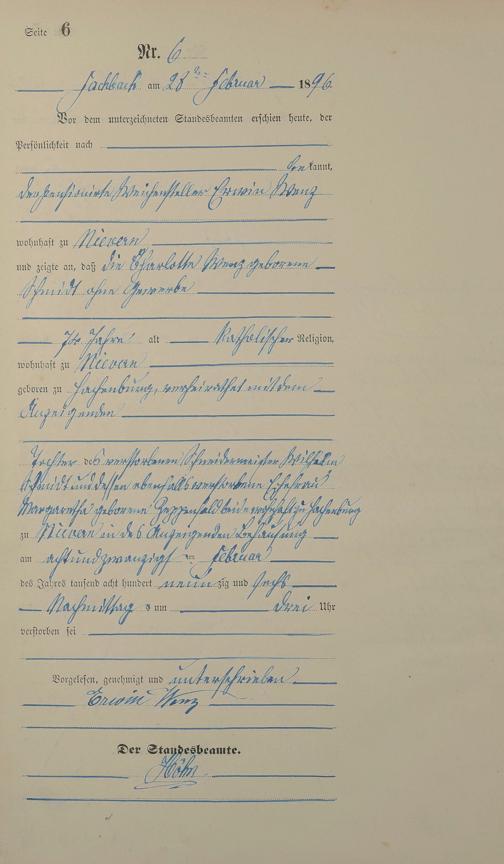 Seite 6
Nr. 6
Fachbach am 28ten Februar 1896
Vor dem unterzeichneten Standesbeamten erschien heute, der
Persönlichkeit nach
bekannt,
der pensionirte Weichensteller Erwin Wenz
wohnhaft zu Nievern
und zeigte an, daß die Charlotte Wenz geborene
Schmidt ohne Gewerbe
Jahre alt katholischer Religion,
wohnhaft zu Nievern
geboren zu Hachenburg, verheirathet mit dem
Anzeigenden
Tochter des verstorbenen Schneidermeister Wilhelm
Schmidt und dessen ebenfalls verstorbene Ehefrau
Margaretha geborene beide wohnhaft zu Hachenburg
zu Nievern in des Anzeigenden Behausung
am achtundzwanzigsten Februar
des Jahres tausend acht hundert neunzig und sechs
Nachmittags um drei Uhr
verstorben sei
Vorgelesen, genehmigt und unterschrieben
Erwin Wenz
Der Standesbeamte.
Höhn